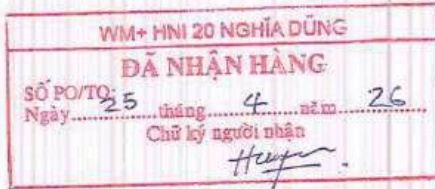 WM+ HNI 20 NGHĨA DŨNG
ĐÃ NHẬN HÀNG
SỐ PO/TO:
Ngày 25 tháng 4 năm 26
Chữ ký người nhận